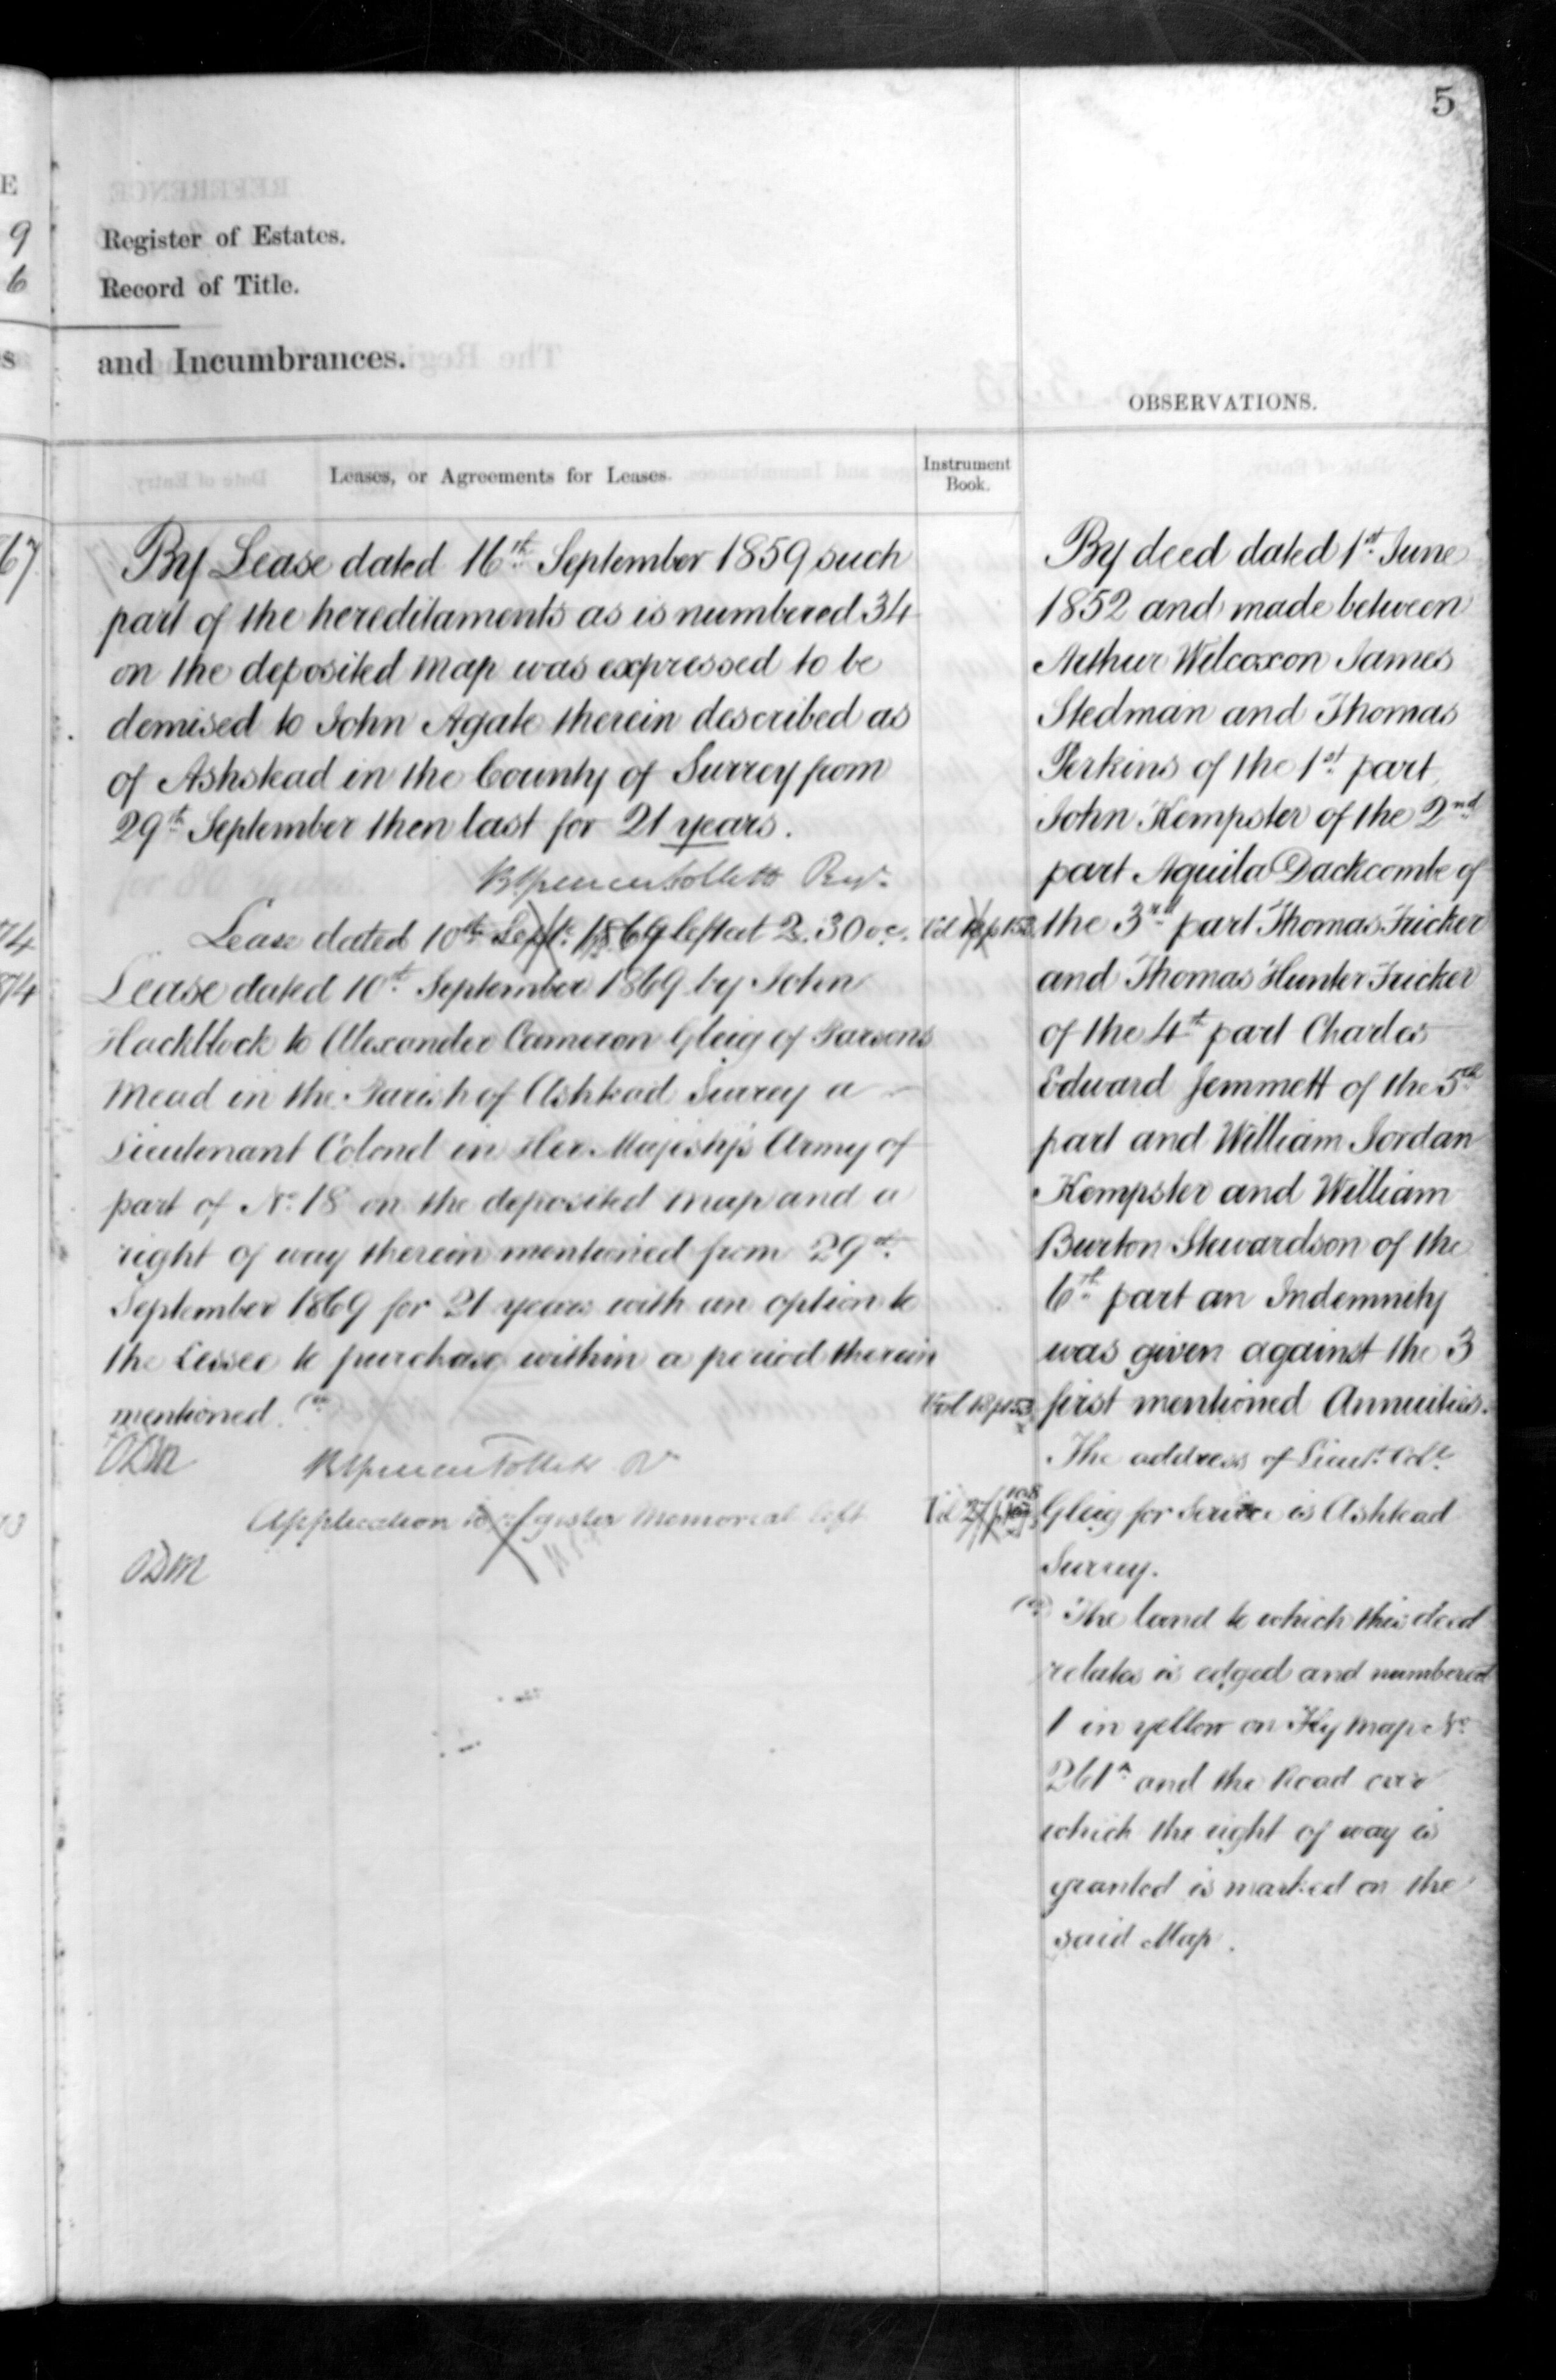 5
E
9
6
s
Register of Estates.
Record of Title.
and Incumbrances.
OBSERVATIONS.
Leases, or Agreements for Leases.
Instrument
Book.
67
By Lease dated 16th September 1859 such
part of the hereditaments as is numbered 34
on the deposited map was expressed to be
demised to John Agate therein described as
of Ashstead in the County of Surrey from
29th September then last for 21 years.
Lease dated 10th Septr. 1869 left at 2.30 oc.
74
874
Lease dated 10th September 1869 by John
Hackblock to Alexander Cameron Gleig of Parsons
Mead in the Parish of Ashtead Surrey a
Lieutenant Colonel in Her Majesty's Army of
part of No. 18 on the deposited map and a
right of way therein mentioned from 29th
September 1869 for 21 years with an option to
the Lessee to purchase within a period therein
mentioned. (a)
Vol 18 p 153
Application to register Memorial left
Vol 27
By deed dated 1st June
1852 and made between
Arthur Wilcoxon James
Stedman and Thomas
Perkins of the 1st part
John Kempster of the 2nd
part Aquila Dackcombe of
the 3rd part Thomas Fricker
and Thomas Hunter Fricker
of the 4th part Charles
Edward Jemmett of the 5th
part and William Jordan
Kempster and William
Burton Stewardson of the
6th part an Indemnity
was given against the 3
first mentioned Annuities.
The address of Lieut. Coll.
Gleig for Service is Ashtead
Surrey.
(a) The land to which this deed
relates is edged and numbered
1 in yellow on Key Map No.
261A and the Road over
which the right of way is
granted is marked on the
said Map.